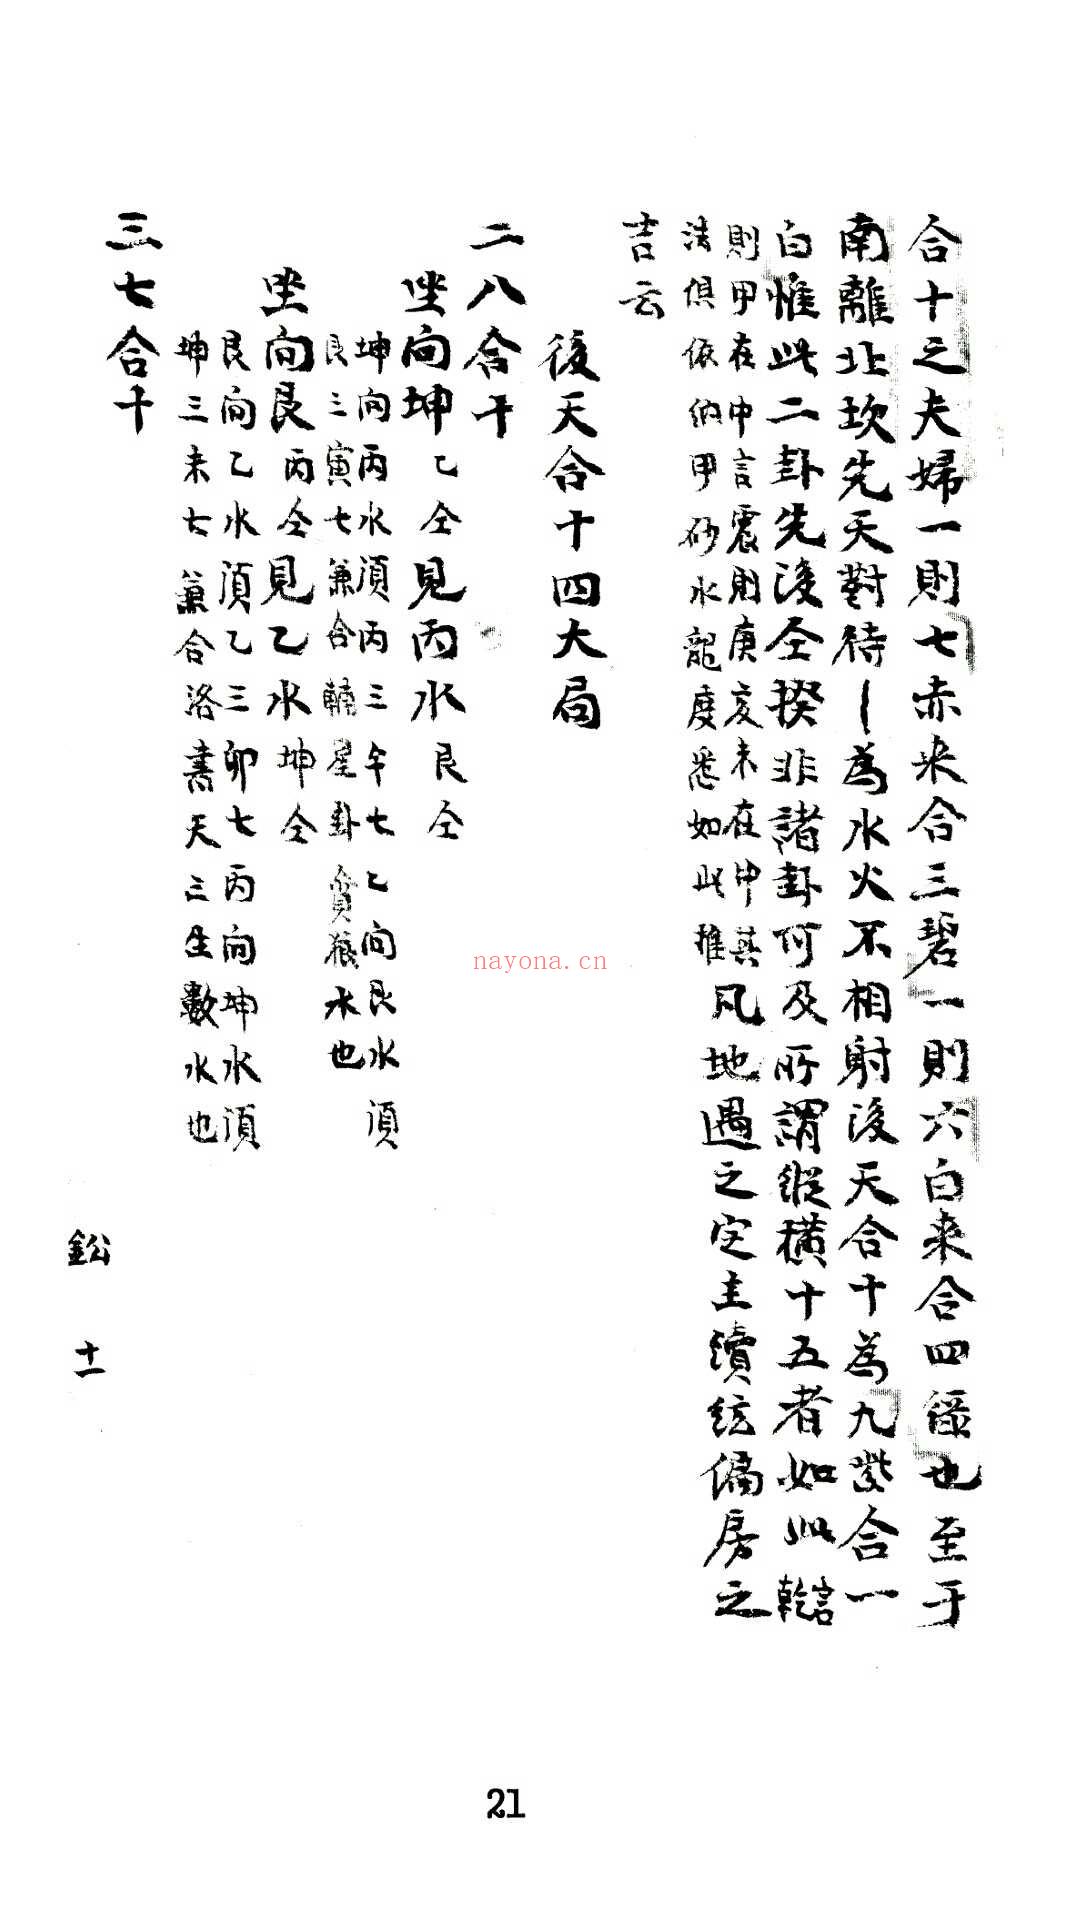 合十之夫婦一則七赤來合三碧一則六白來合四綠也至于
南離北坎先天對待丨為水火不相射後天合十為九紫合一
白惟此二卦先後仝揆非諸卦可及所謂縱橫十五者如此言乾
則甲在中言震則庚亥未在中其
法俱依納甲砂水龍度悉如此推
凡地遇之定主續絃偏房之
吉云
後天合十四大局
二八合十
坐向坤乙仝見丙水艮仝
坤向丙水須丙三午七乙向艮水須
艮三寅七兼合輔星卦貪狼水也
坐向艮丙仝見乙水坤仝
艮向乙水須乙三卯七丙向坤水須
坤三未七兼合洛書天三生數水也
三七合十
鈆 十一
21
nayona.cn